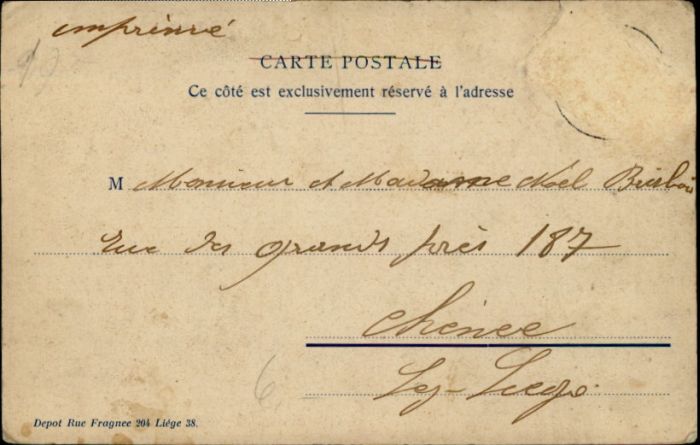 imprimé
CARTE POSTALE
Ce côté est exclusivement réservé à l'adresse
M Monsieur et Madame Noël
Rue des grands prés 187
Chênée
Lez-Liège
6
Depot Rue Fragnee 204 Liége 38.